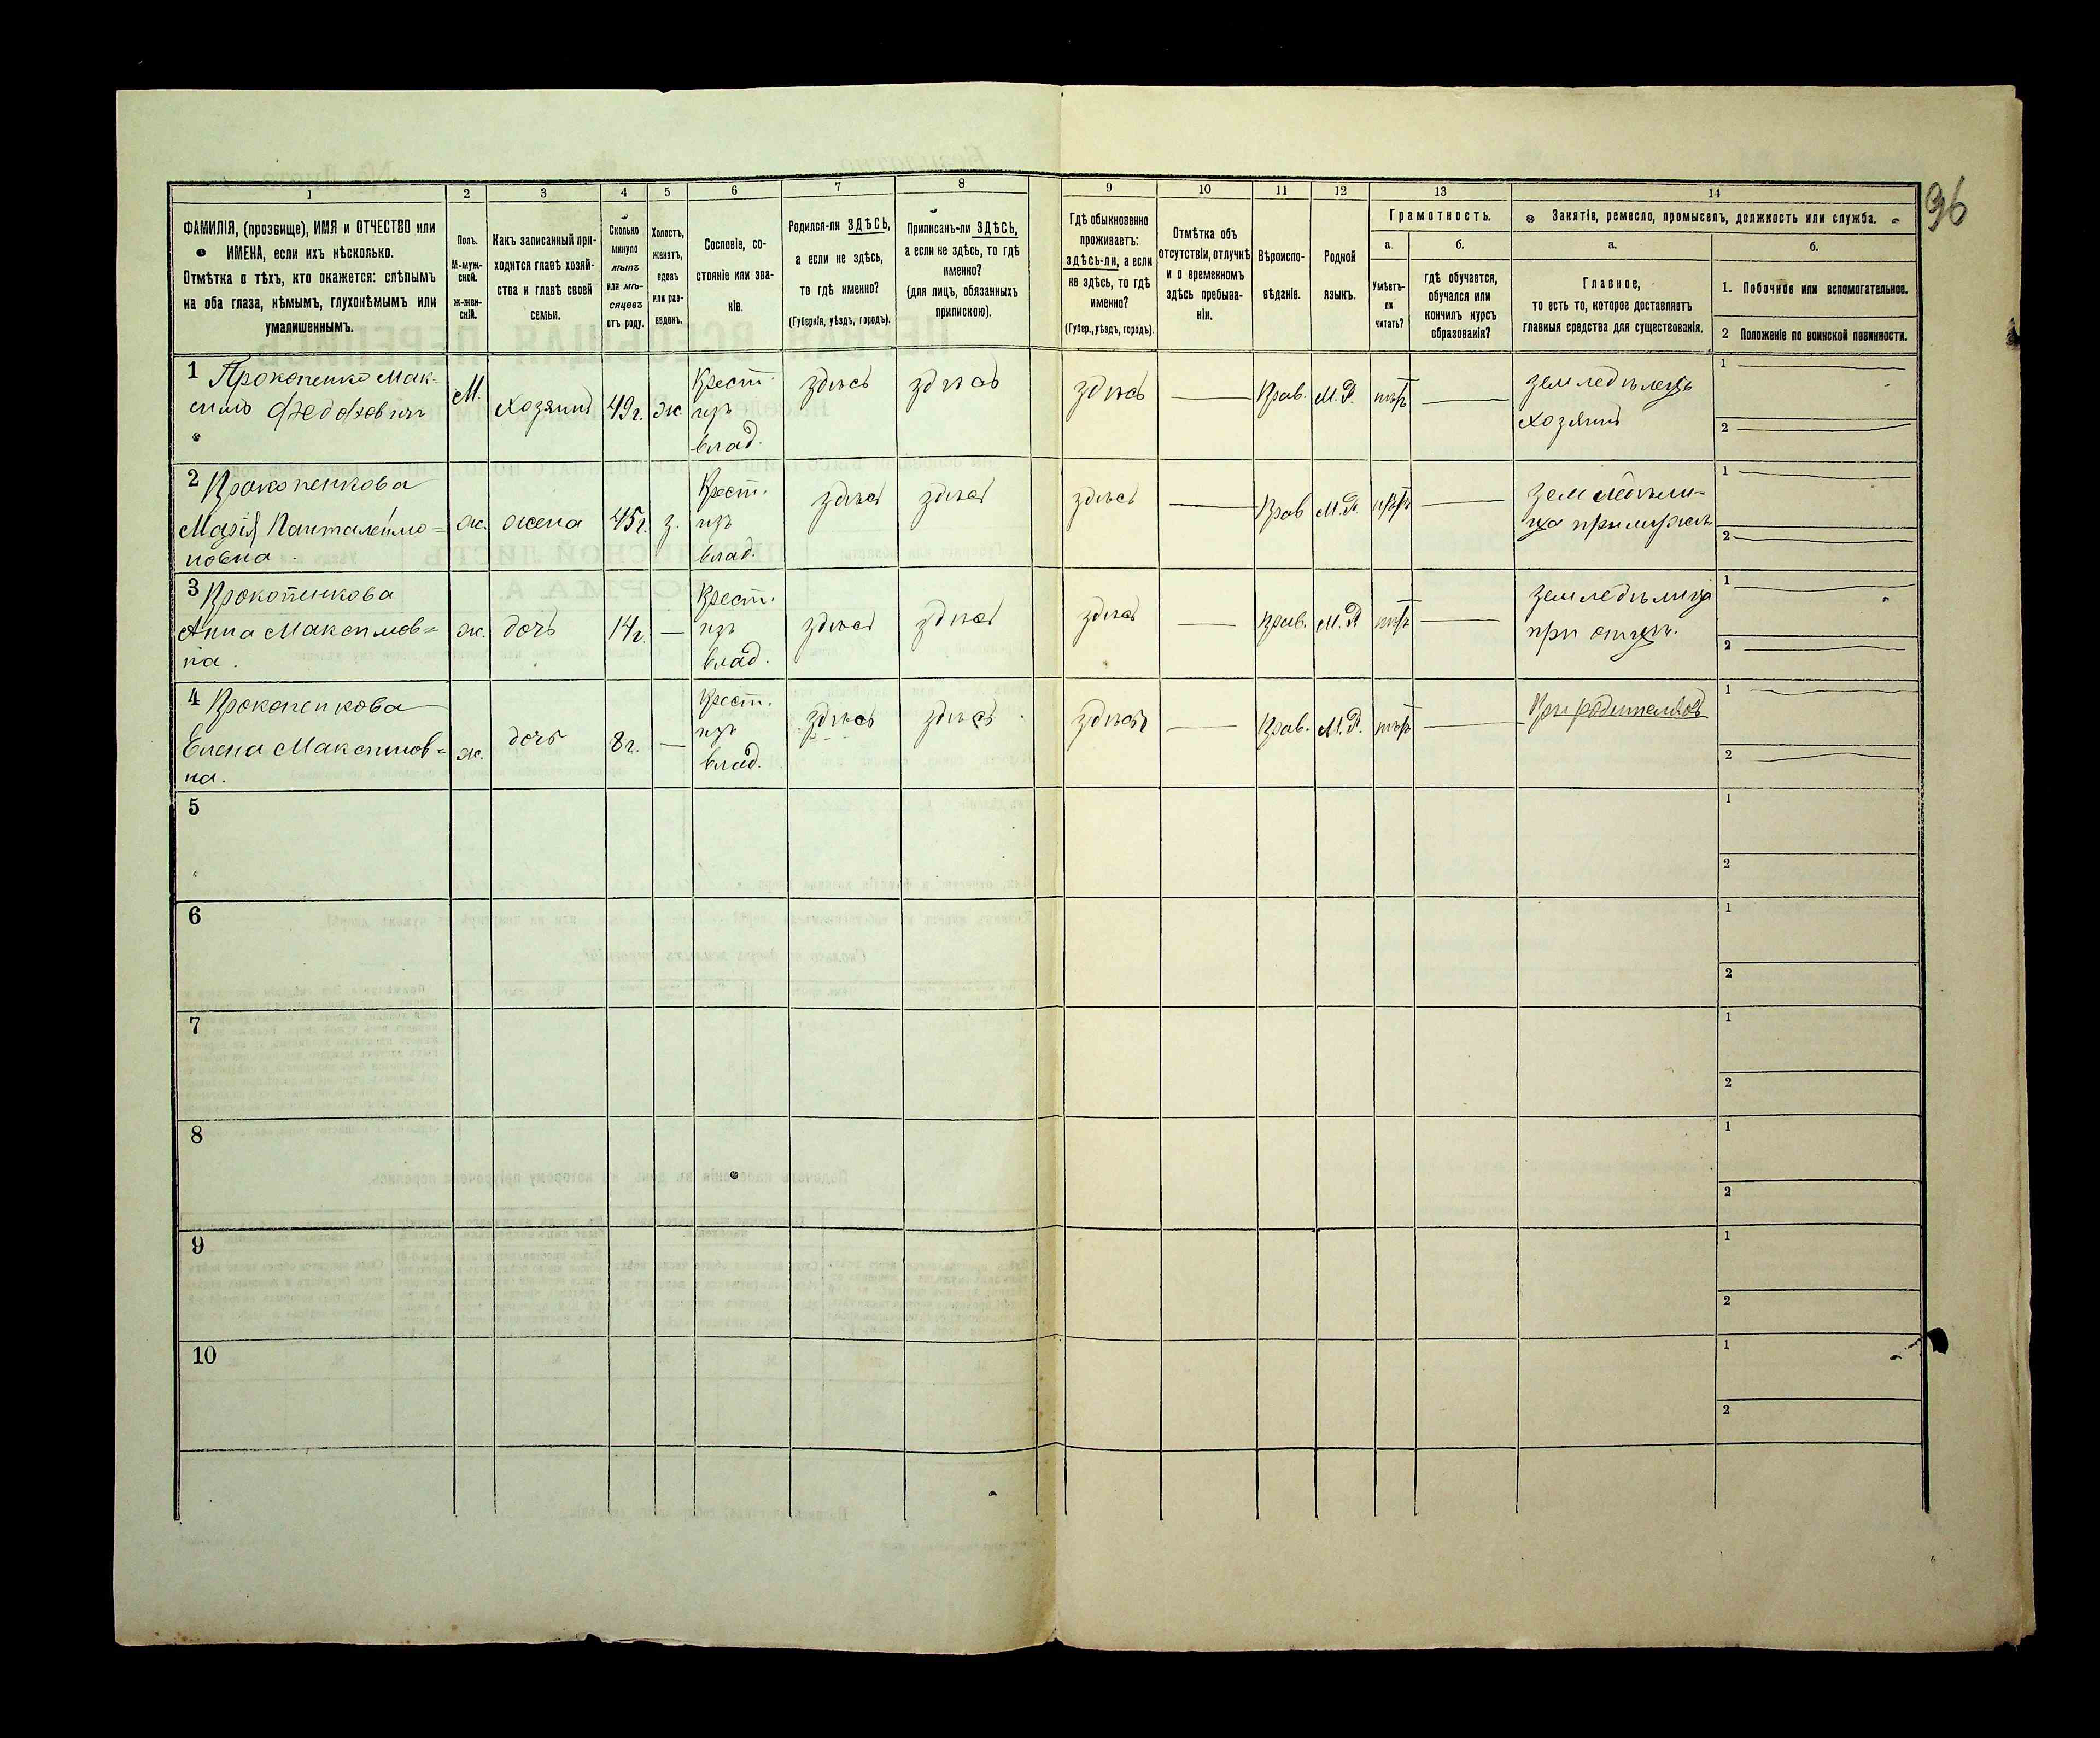 96
1 2 3 4 5 6 7 8 9 10 11 12 13 14
ФАМИЛІЯ, (прозвище), ИМЯ и ОТЧЕСТВО или
ИМЕНА, если ихъ нѣсколько.
Отмѣтка о тѣхъ, кто окажется: слѣпымъ
на оба глаза, нѣмымъ, глухонѣмымъ или
умалишеннымъ.
Полъ.
М-муж-
ской.
Ж-жен-
скій.
Какъ записанный при-
ходится главѣ хозяй-
ства и главѣ своей
семьи.
Сколько
минуло
лѣтъ
или мѣ-
сяцевъ
отъ роду.
Холостъ,
женатъ,
вдовъ
или раз-
веденъ.
Сословіе, со-
стояніе или зва-
ніе.
Родился-ли ЗДѢСЬ,
а если не здѣсь,
то гдѣ именно?
(Губернія, уѣздъ, городъ).
Приписанъ-ли ЗДѢСЬ,
а если не здѣсь, то гдѣ
именно?
(для лицъ, обязанныхъ
припискою).
Гдѣ обыкновенно
проживаетъ:
здѣсь-ли, а если
не здѣсь, то гдѣ
именно?
(Губер., уѣздъ, городъ).
Отмѣтка объ
отсутствіи, отлучкѣ
и о временномъ
здѣсь пребыва-
ніи.
Вѣроиспо-
вѣданіе.
Родной
языкъ.
Грамотность.
а.
Умѣетъ-
ли
читать?
б.
гдѣ обучается,
обучался или
кончилъ курсъ
образованія?
Занятіе, ремесло, промыселъ, должность или служба.
а.
Главное,
то есть то, которое доставляетъ
главныя средства для существованія.
б.
1. Побочное или вспомогательное.
2 Положеніе по воинской повинности.
1 Прокопенко Мак-
симъ Федоровичъ
М.
Хозяинъ
49 г.
ж.
Крест.
изъ
влад.
здѣсь
здѣсь
здѣсь
Прав.
М.Р.
нѣтъ
земледѣлецъ
хозяинъ
1
2
2 Прокопенкова
Марія Панталеймо=
новна.
ж.
жена
45 г.
з.
Крест.
изъ
влад.
здѣсь
здѣсь
здѣсь
Прав
М.Р.
нѣтъ
земледѣли-
ца при мужѣ
1
2
3 Прокопенкова
Анна Максимов=
на.
ж.
дочь
14 г.
Крест.
изъ
влад.
здѣсь
здѣсь
здѣсь
Прав.
М.Р
нѣтъ
земледѣлица
при отцѣ.
1
2
4 Прокопенкова
Елена Максимов=
на.
ж.
дочь
8 г.
Крест.
изъ
влад.
здѣсь
здѣсь
здѣсь
Прав.
М.Р.
нѣтъ
При родителяхъ
1
2
5
1
2
6
1
2
7
1
2
8
1
2
9
1
2
10
1
2